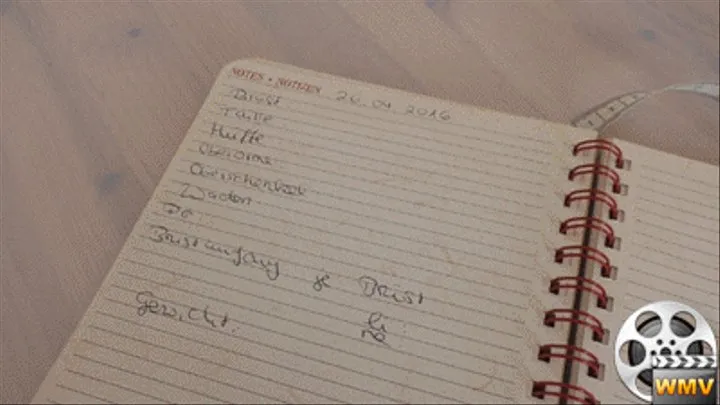 NOTES • NOTIZEN 26.04.2016
Brust
Taille
Hüfte
Oberarme
Oberschenkel
Waden
Po
Brustumfang & Brust
li
re
Gewicht.
WMV